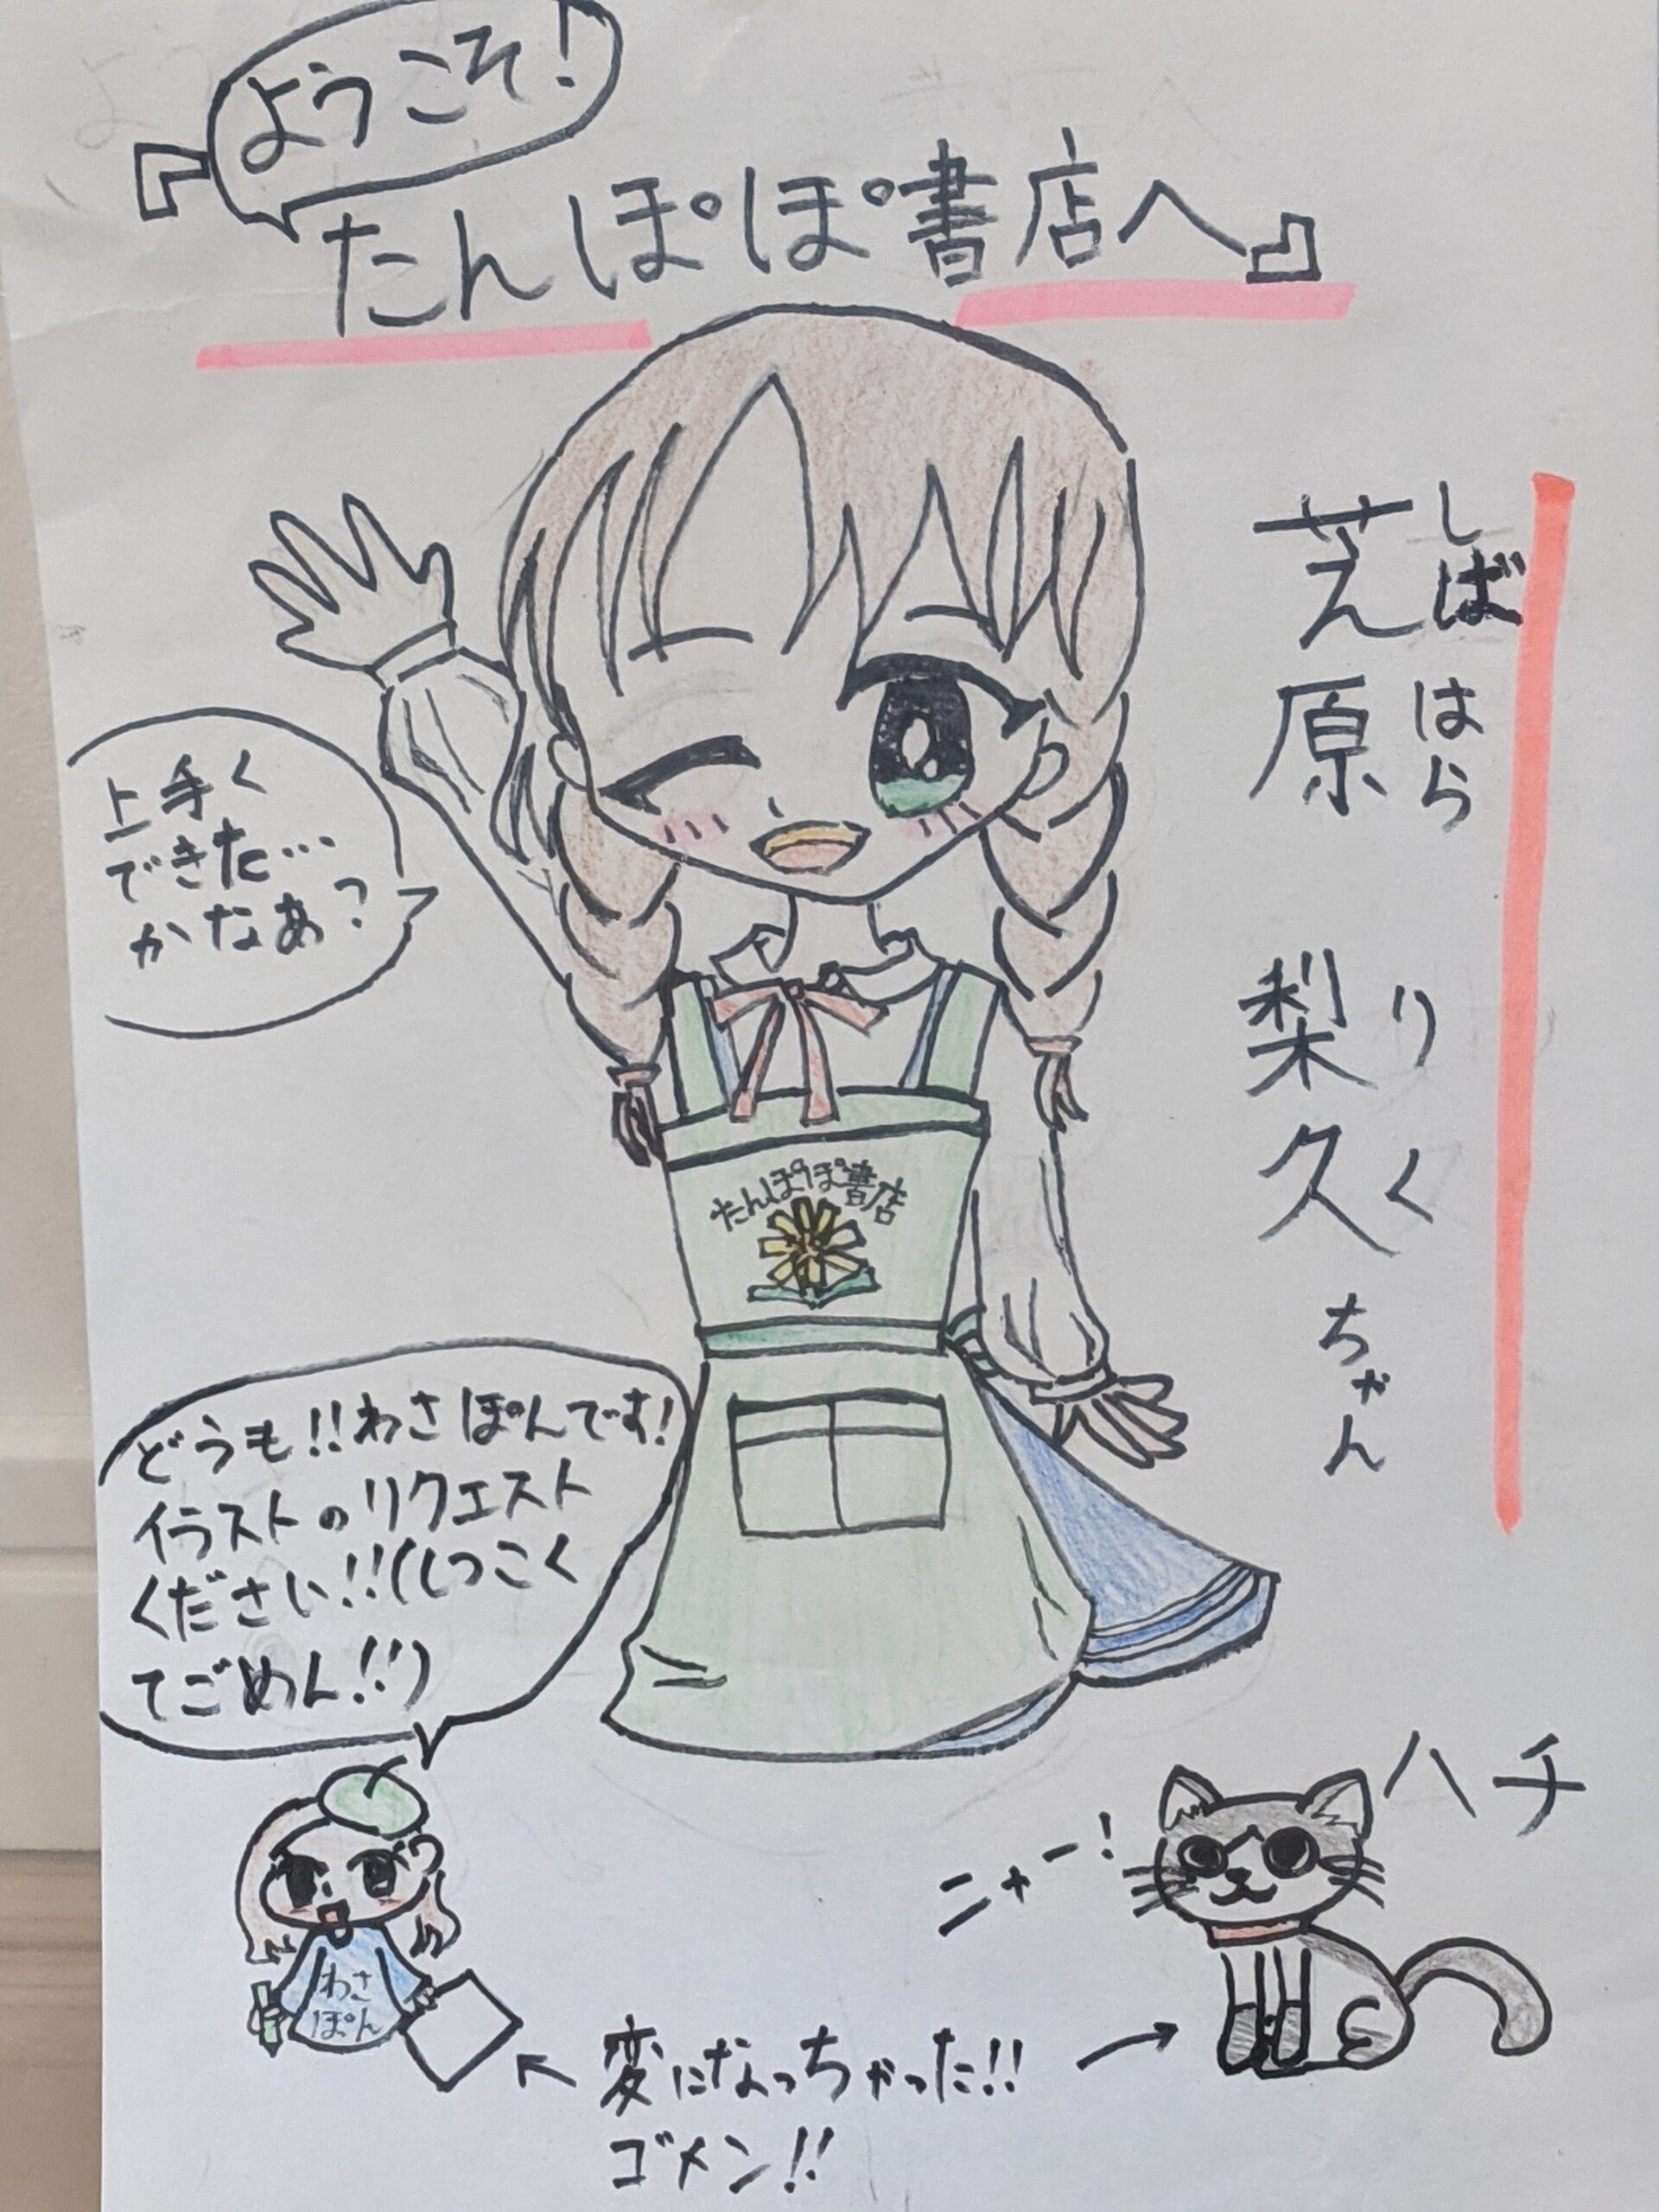 ようこそ!
『たんぽぽ書店へ』
しばはら りく
芝原 梨久ちゃん
上手く
できた…
かなあ?
たんぽぽ書店
どうも!!わさぽんです!
イラストのリクエスト
ください!!(しつこく
てごめん!!)
わさ
ぽん
ハチ
ニャー!
変になっちゃった!!
ゴメン!!